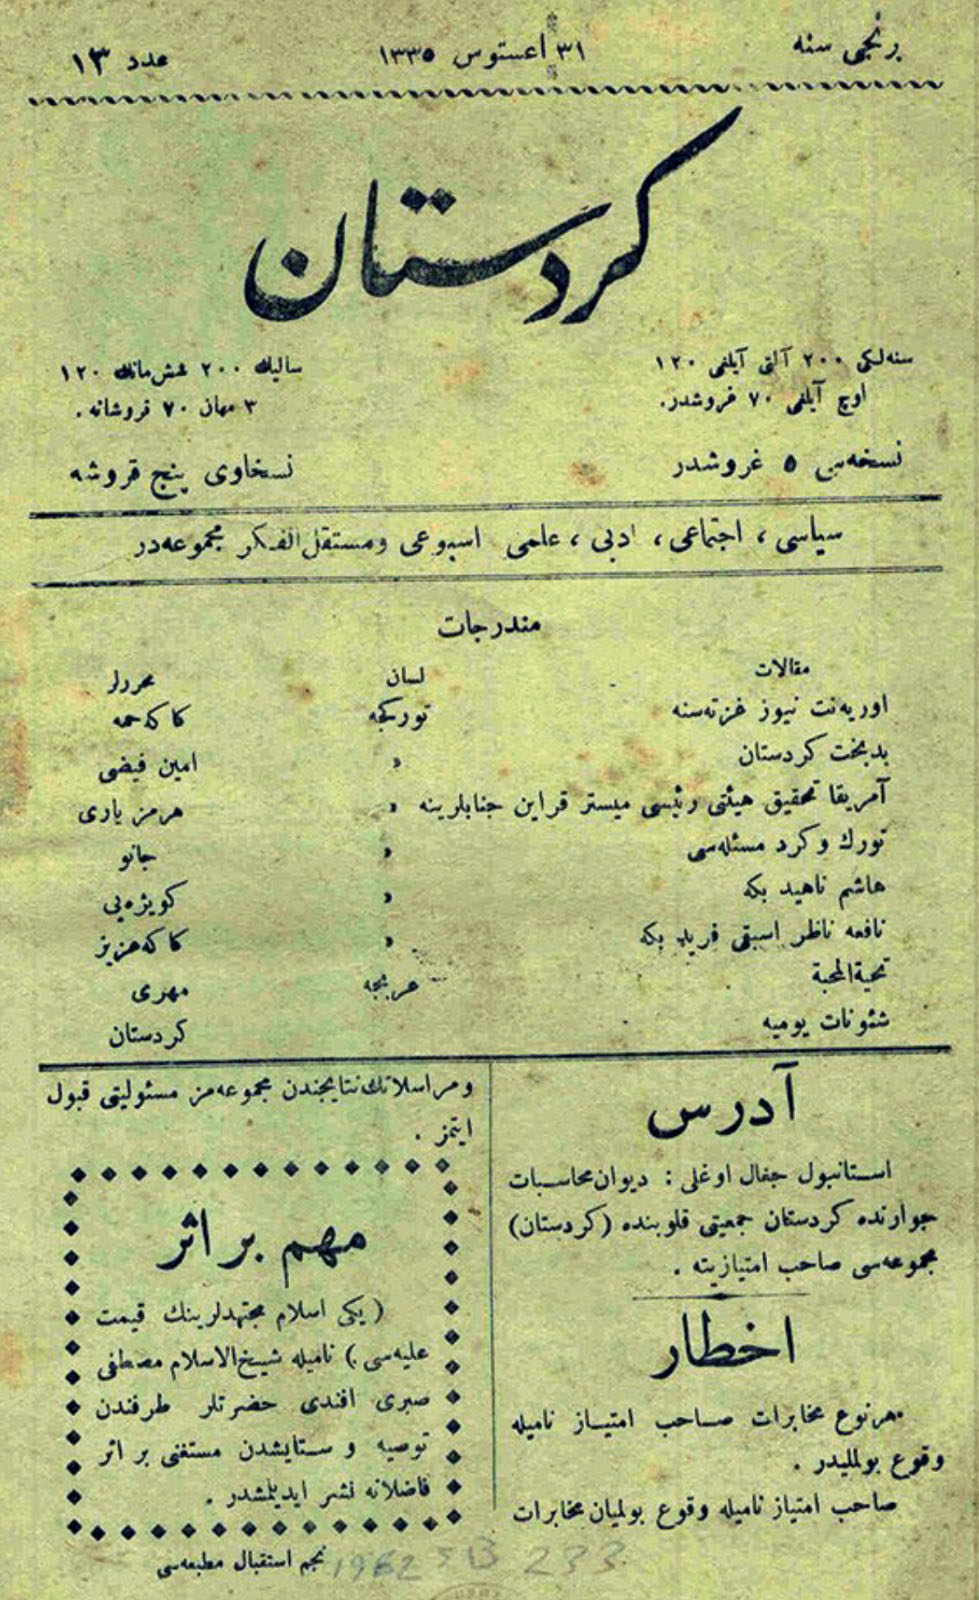 برنجی سنه
٣١ اغستوس ١٣٣٥
عدد ١٣
كردستان
سنه‌لكی ٢٠٠ آلتی آیلغی ١٢٠
اوچ آیلغی ٧٠ غروشدر.
نسخه‌سی ٥ غروشدر
سالیك ٢٠٠ شش مانك ١٢٠
٣ مهان ٧٠ قروشانه .
نسخاوی پنج قروشه
سیاسی ، اجتماعی ، ادبی ، علمی اسبوعی ومستقل‌الفكر مجموعه‌در
مندرجات
مقالات لسان محررلر
اوریه‌نت نیوز غزته‌سنه توركجه كاكه حمه
بدبخت كردستان » امین فیضی
آمریقا تحقیق هیئتی رئیسی میستر قراین جنابلرینه » هرمز یاری
تورك وكرد مسئله‌سی » جانو
هاشم ناهید بكه » كویژه‌یی
نافعه ناظر اسبقی فرید بكه » كاكه عزیز
تحیةالمحبة عربجه مهری
شئونات یومیه كردستان
آدرس
استانبول جغال اوغلی : دیوان محاسبات
جوارنده كردستان جمعیتی قلوبنده (كردستان)
مجموعه‌سی صاحب امتیازینه .
اخطار
هرنوع مخابرات صاحب امتیاز نامیله
وقوع بولملیدر .
صاحب امتیاز نامیله وقوع بولمیان مخابرات
ومراسلاتك نتایجندن مجموعه‌مز مسئولیتی قبول
ایتمز .
مهم بر اثر
(یكی اسلام مجتهدلرینك قیمت
علمیه‌سی) نامیله شیخ‌الاسلام مصطفی
صبری افندی حضرتلر طرفندن
توصیه و ستایشدن مستغنی بر اثر
فاضلانه نشر ایدیلمشدر .
نجم استقبال مطبعه‌سی
1962 513 233